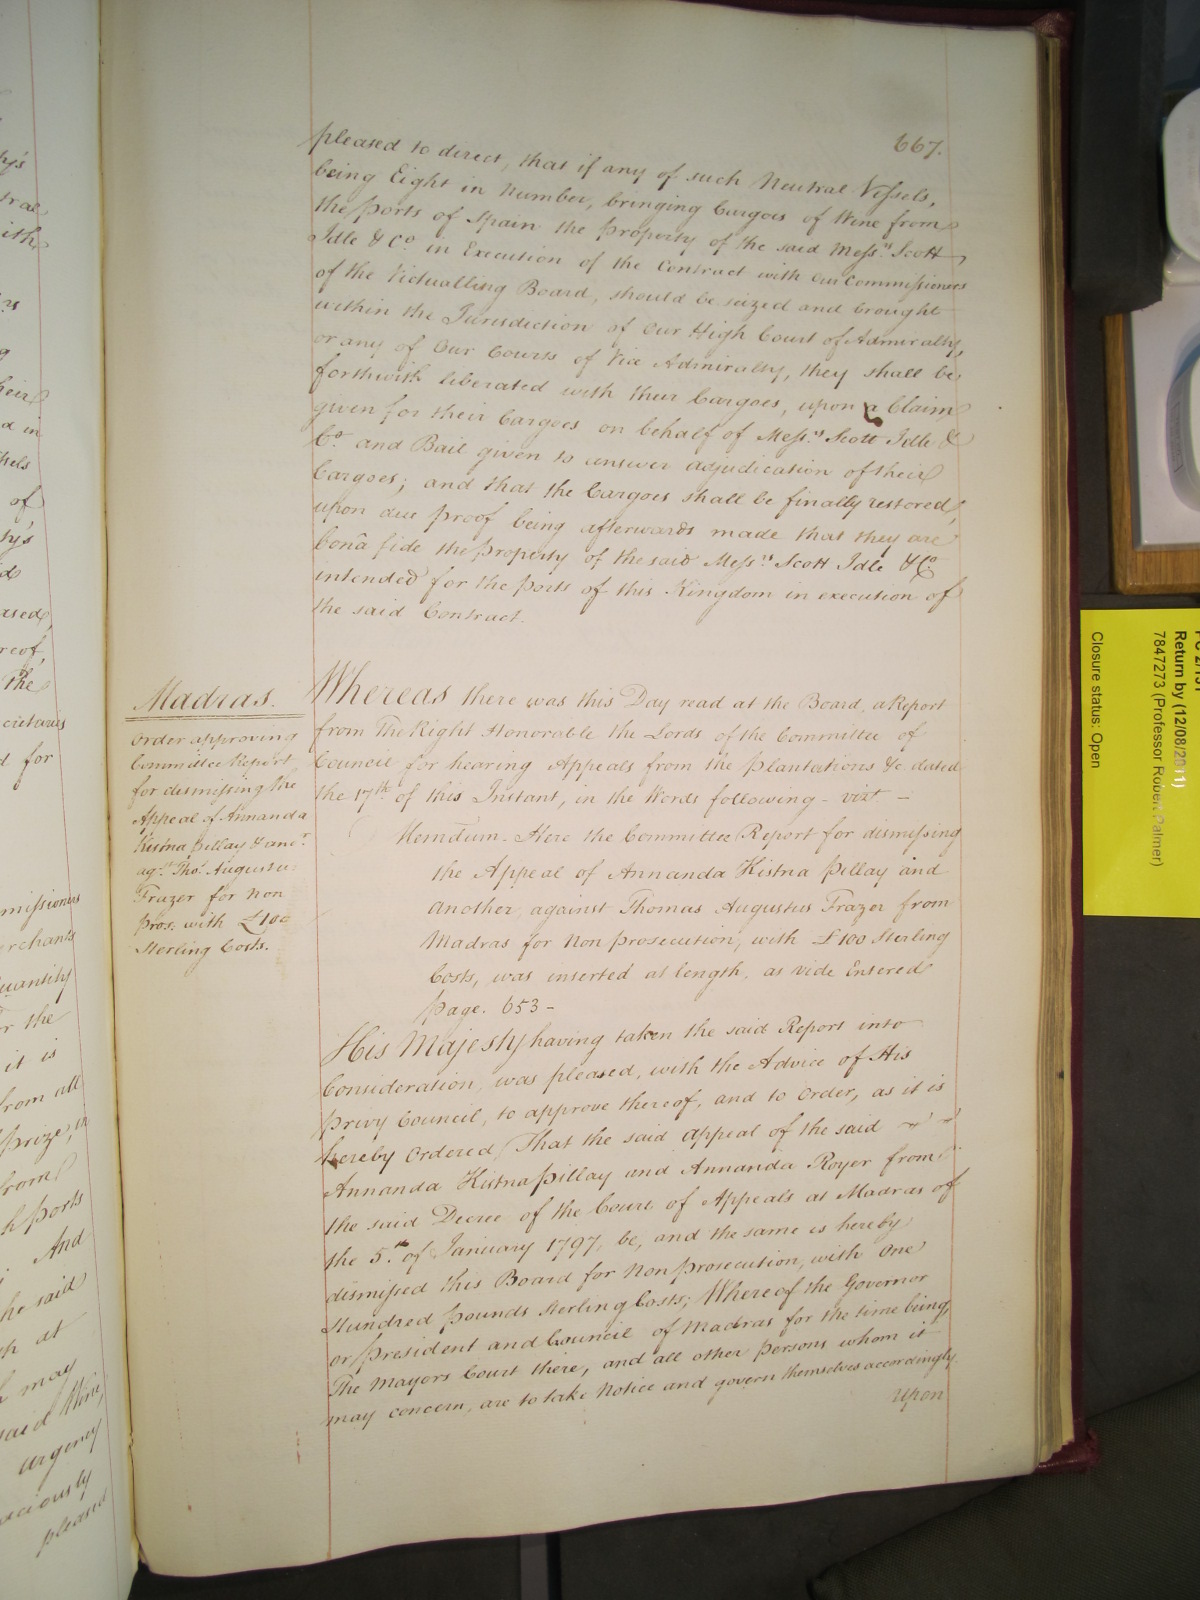 667.
pleased to direct, that if any of such Neutral Vessels,
being Eight in Number, bringing Cargoes of Wine from
the ports of Spain the property of the said Mess.rs Scott
Idle & Co. in Execution of the Contract with our Commissioners
of the Victualling Board, should be seized and brought
within the Jurisdiction of Our High Court of Admiralty,
or any of Our Courts of Vice Admiralty, they shall be
forthwith liberated with their Cargoes, upon a Claim
given for their Cargoes on behalf of Mess.rs Scott Idle &
Co. and Bail given to answer adjudication of their
Cargoes; and that the Cargoes shall be finally restored,
upon due proof being afterwards made that they are
bonâ fide the property of the said Mess.rs Scott Idle & Co.
intended for the Ports of this Kingdom in execution of
the said Contract.
Madras.
Order approving
Committee Report
for dismissing the
Appeal of Annanda
Kistna Pillay & anor.
agt. Thos. Augustus
Frazer for Non
Pros: with £100
Sterling Costs.
Whereas there was this Day read at the Board, a Report
from The Right Honorable the Lords of the Committee of
Council for hearing Appeals from the Plantations &c. dated
the 17th of this Instant, in the Words following - vizt. -
Memdum. Here the Committee Report for dismissing
the Appeal of Annanda Kistna Pillay and
another, against Thomas Augustus Frazer from
Madras for Non prosecution, with £100 Sterling
Costs, was inserted at length, as vide Entered
page. 653 -
His Majesty having taken the said Report into
Consideration, was pleased, with the Advice of His
Privy Council, to approve thereof, and to Order, as it is
hereby Ordered, That the said appeal of the said
Annanda Kistna Pillay and Annanda Royer from
the said Decree of the Court of Appeals at Madras of
the 5th of January 1797, be, and the same is hereby
dismissed this Board for Non prosecution, with One
Hundred pounds Sterling Costs; Whereof the Governor
or President and Council of Madras for the time being,
The Mayors Court there, and all other persons whom it
may concern, are to take Notice and govern themselves accordingly.
Upon
Return by (12/08/2011)
7847273 (Professor Robert Palmer)
Closure status: Open
of
ased,
reof,
The
for
missioners
merchants
Quantity
or the
it is
from all
prize, in
from
ports
And
he said
at
may
said Wine,
urgency
graciously
pleased